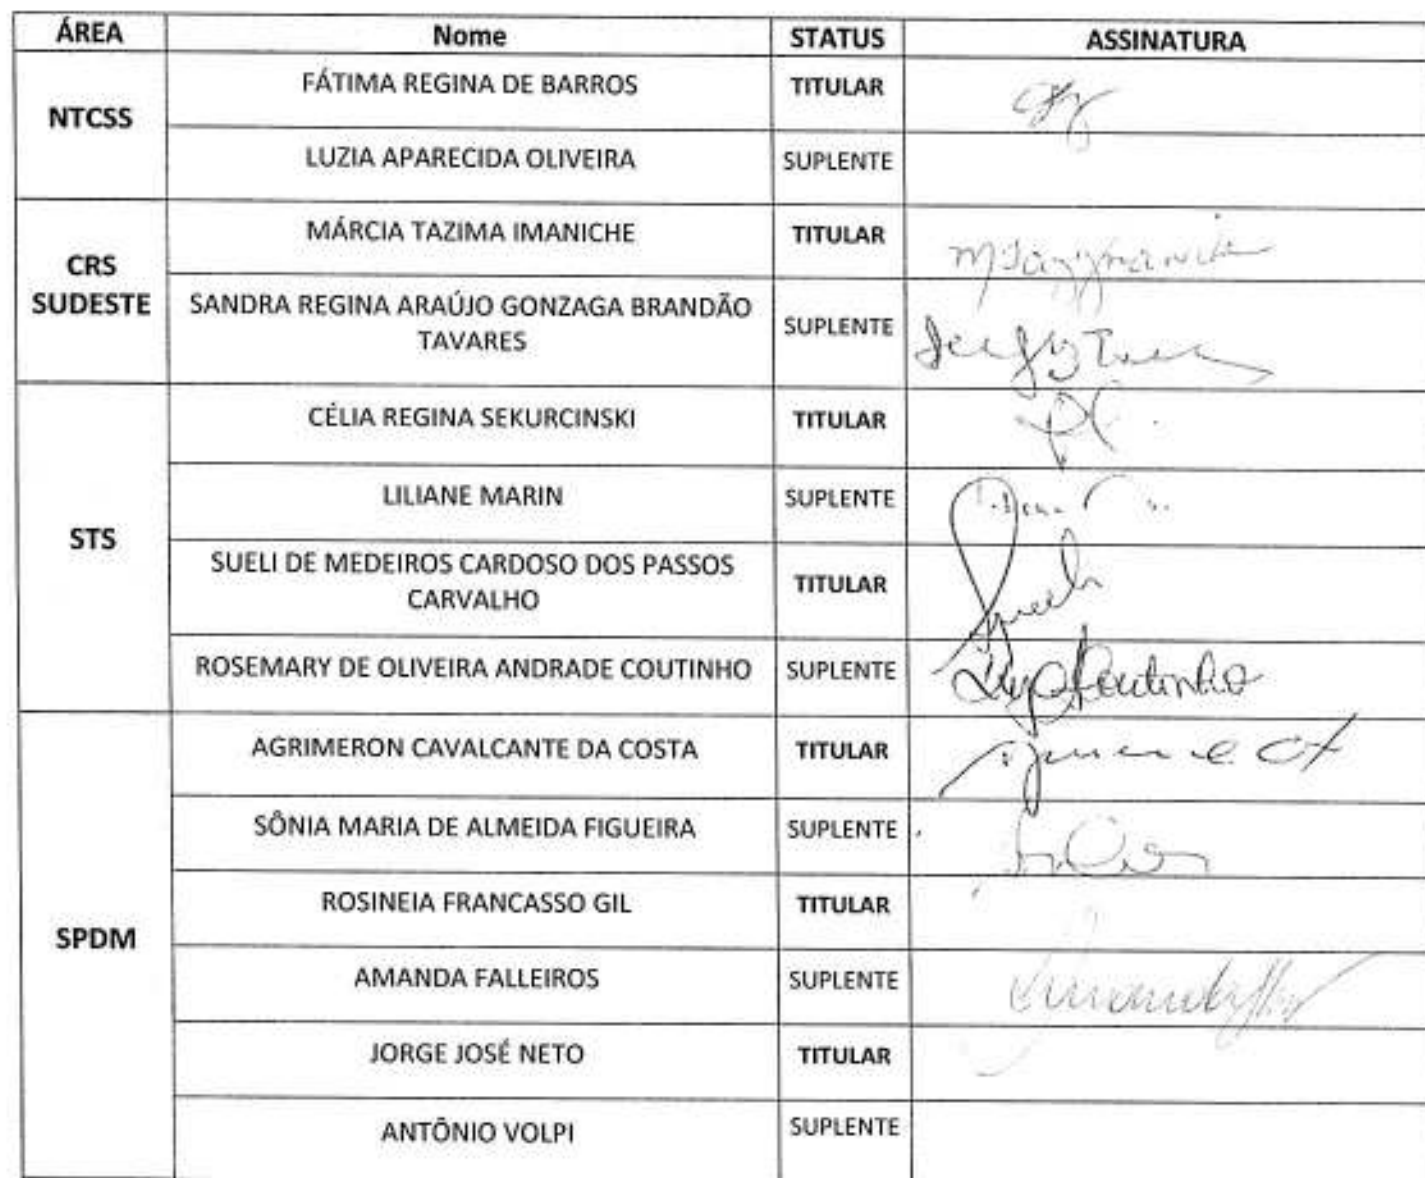 ÁREA Nome STATUS ASSINATURA
NTCSS
FÁTIMA REGINA DE BARROS TITULAR
LUZIA APARECIDA OLIVEIRA SUPLENTE
CRS
SUDESTE
MÁRCIA TAZIMA IMANICHE TITULAR
SANDRA REGINA ARAÚJO GONZAGA BRANDÃO
TAVARES
SUPLENTE
STS
CÉLIA REGINA SEKURCINSKI TITULAR
LILIANE MARIN SUPLENTE
SUELI DE MEDEIROS CARDOSO DOS PASSOS
CARVALHO
TITULAR Sueli
ROSEMARY DE OLIVEIRA ANDRADE COUTINHO SUPLENTE Coutinho
SPDM
AGRIMERON CAVALCANTE DA COSTA TITULAR
SÔNIA MARIA DE ALMEIDA FIGUEIRA SUPLENTE
ROSINEIA FRANCASSO GIL TITULAR
AMANDA FALLEIROS SUPLENTE
JORGE JOSÉ NETO TITULAR
ANTÔNIO VOLPI SUPLENTE